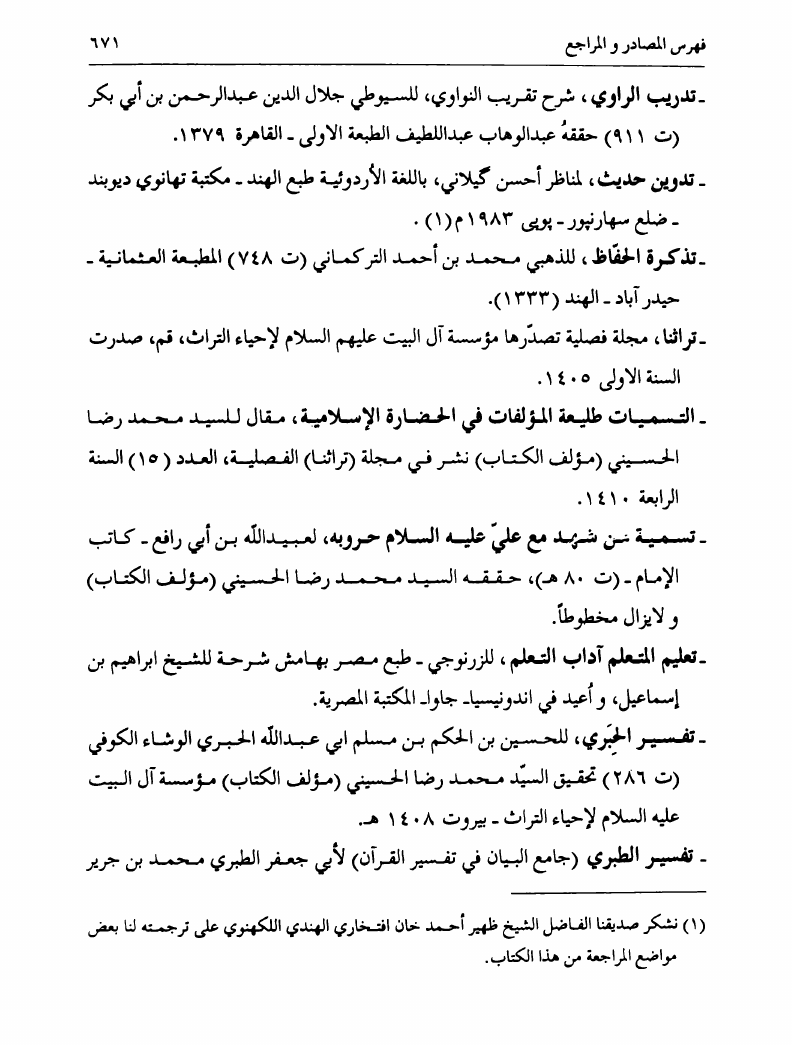 فهرس المصادر و المراجع ٦٧١
ـ تدريب الراوي، شرح تقريب النواوي، للسيوطي جلال الدين عبدالرحمن بن أبي بكر
(ت ٩١١) حققهُ عبدالوهاب عبداللطيف الطبعة الاولى ـ القاهرة ١٣٧٩.
ـ تدوين حديث، لمناظر أحسن گيلاني، باللغة الأردوئية طبع الهند ـ مكتبة تهانوي ديوبند
ـ ضلع سهارنپور ـ يوپى ١٩٨٣م (١).
ـ تذكرة الحفّاظ، للذهبي محمد بن أحمد التركماني (ت ٧٤٨) المطبعة العثمانية ـ
حيدر آباد ـ الهند (١٣٣٣).
ـ تراثنا، مجلة فصلية تصدّرها مؤسسة آل البيت عليهم السلام لإحياء التراث، قم، صدرت
السنة الاولى ١٤٠٥.
ـ التسميات طليعة المؤلفات في الحضارة الإسلامية، مقال للسيد محمد رضا
الحسيني (مؤلف الكتاب) نشر في مجلة (تراثنا) الفصلية، العدد (١٥) السنة
الرابعة ١٤١٠.
ـ تسمية من شهد مع عليّ عليه السلام حروبه، لعبيدالله بن أبي رافع ـ كاتب
الإمام ـ (ت ٨٠ هـ)، حققه السيد محمد رضا الحسيني (مؤلف الكتاب)
و لايزال مخطوطاً.
ـ تعليم المتعلم آداب التعلم، للزرنوجي ـ طبع مصر بهامش شرحة للشيخ ابراهيم بن
إسماعيل، و أعيد في اندونيسيا ـ جاوا ـ المكتبة المصرية.
ـ تفسير الحِبَري، للحسين بن الحكم بن مسلم ابي عبدالله الحبري الوشاء الكوفي
(ت ٢٨٦) تحقيق السيّد محمد رضا الحسيني (مؤلف الكتاب) مؤسسة آل البيت
عليه السلام لإحياء التراث ـ بيروت ١٤٠٨ هـ.
ـ تفسير الطبري (جامع البيان في تفسير القرآن) لأبي جعفر الطبري محمد بن جرير
(١) نشكر صديقنا الفاضل الشيخ ظهير أحمد خان افتخاري الهندي اللكهنوي على ترجمته لنا بعض
مواضع المراجعة من هذا الكتاب.